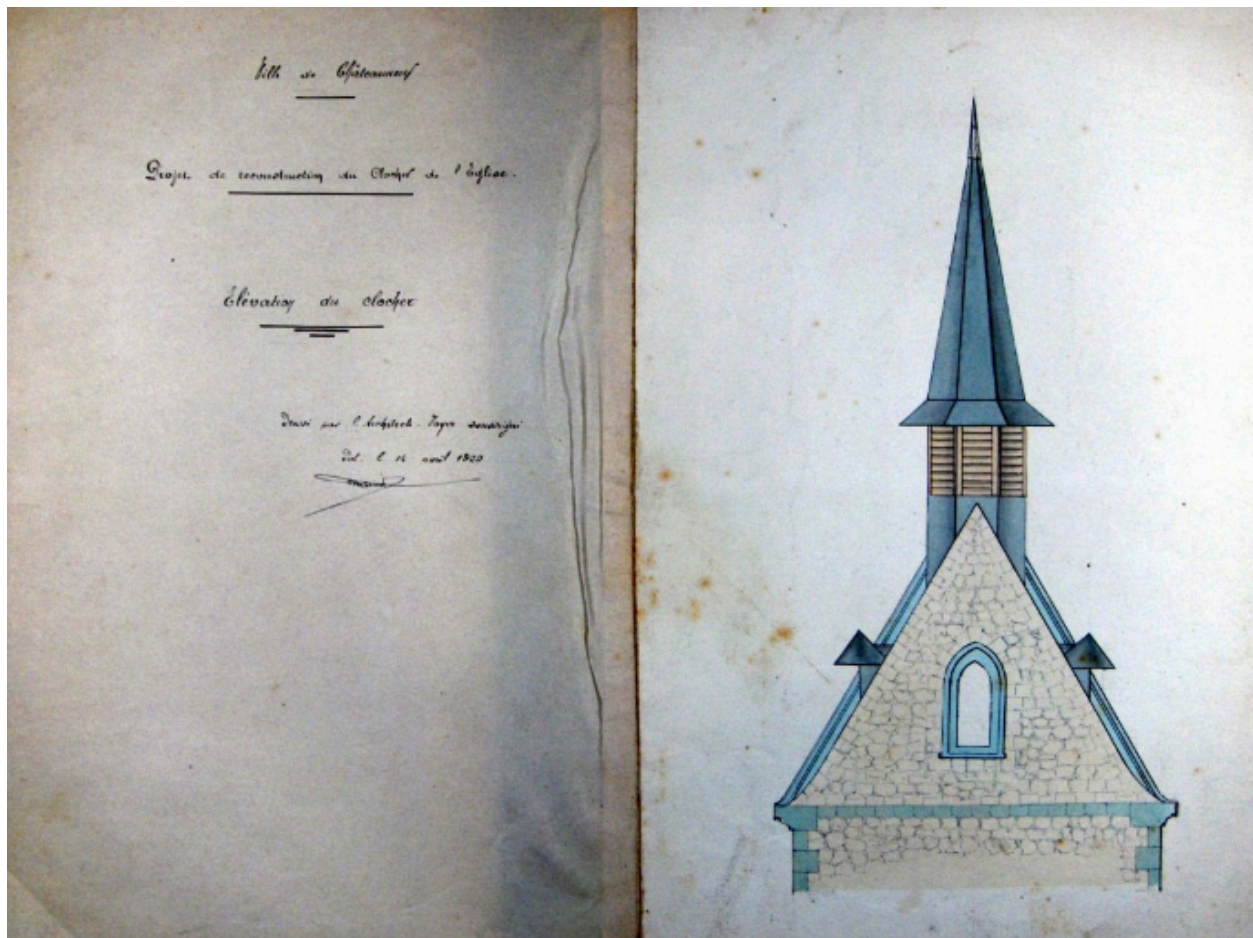 Ville de Châteauneuf
Projet de reconstruction du Clocher de l'Eglise.
Élévation du clocher
Dressé par l'Architecte-Voyer soussigné
le 14 août 1920